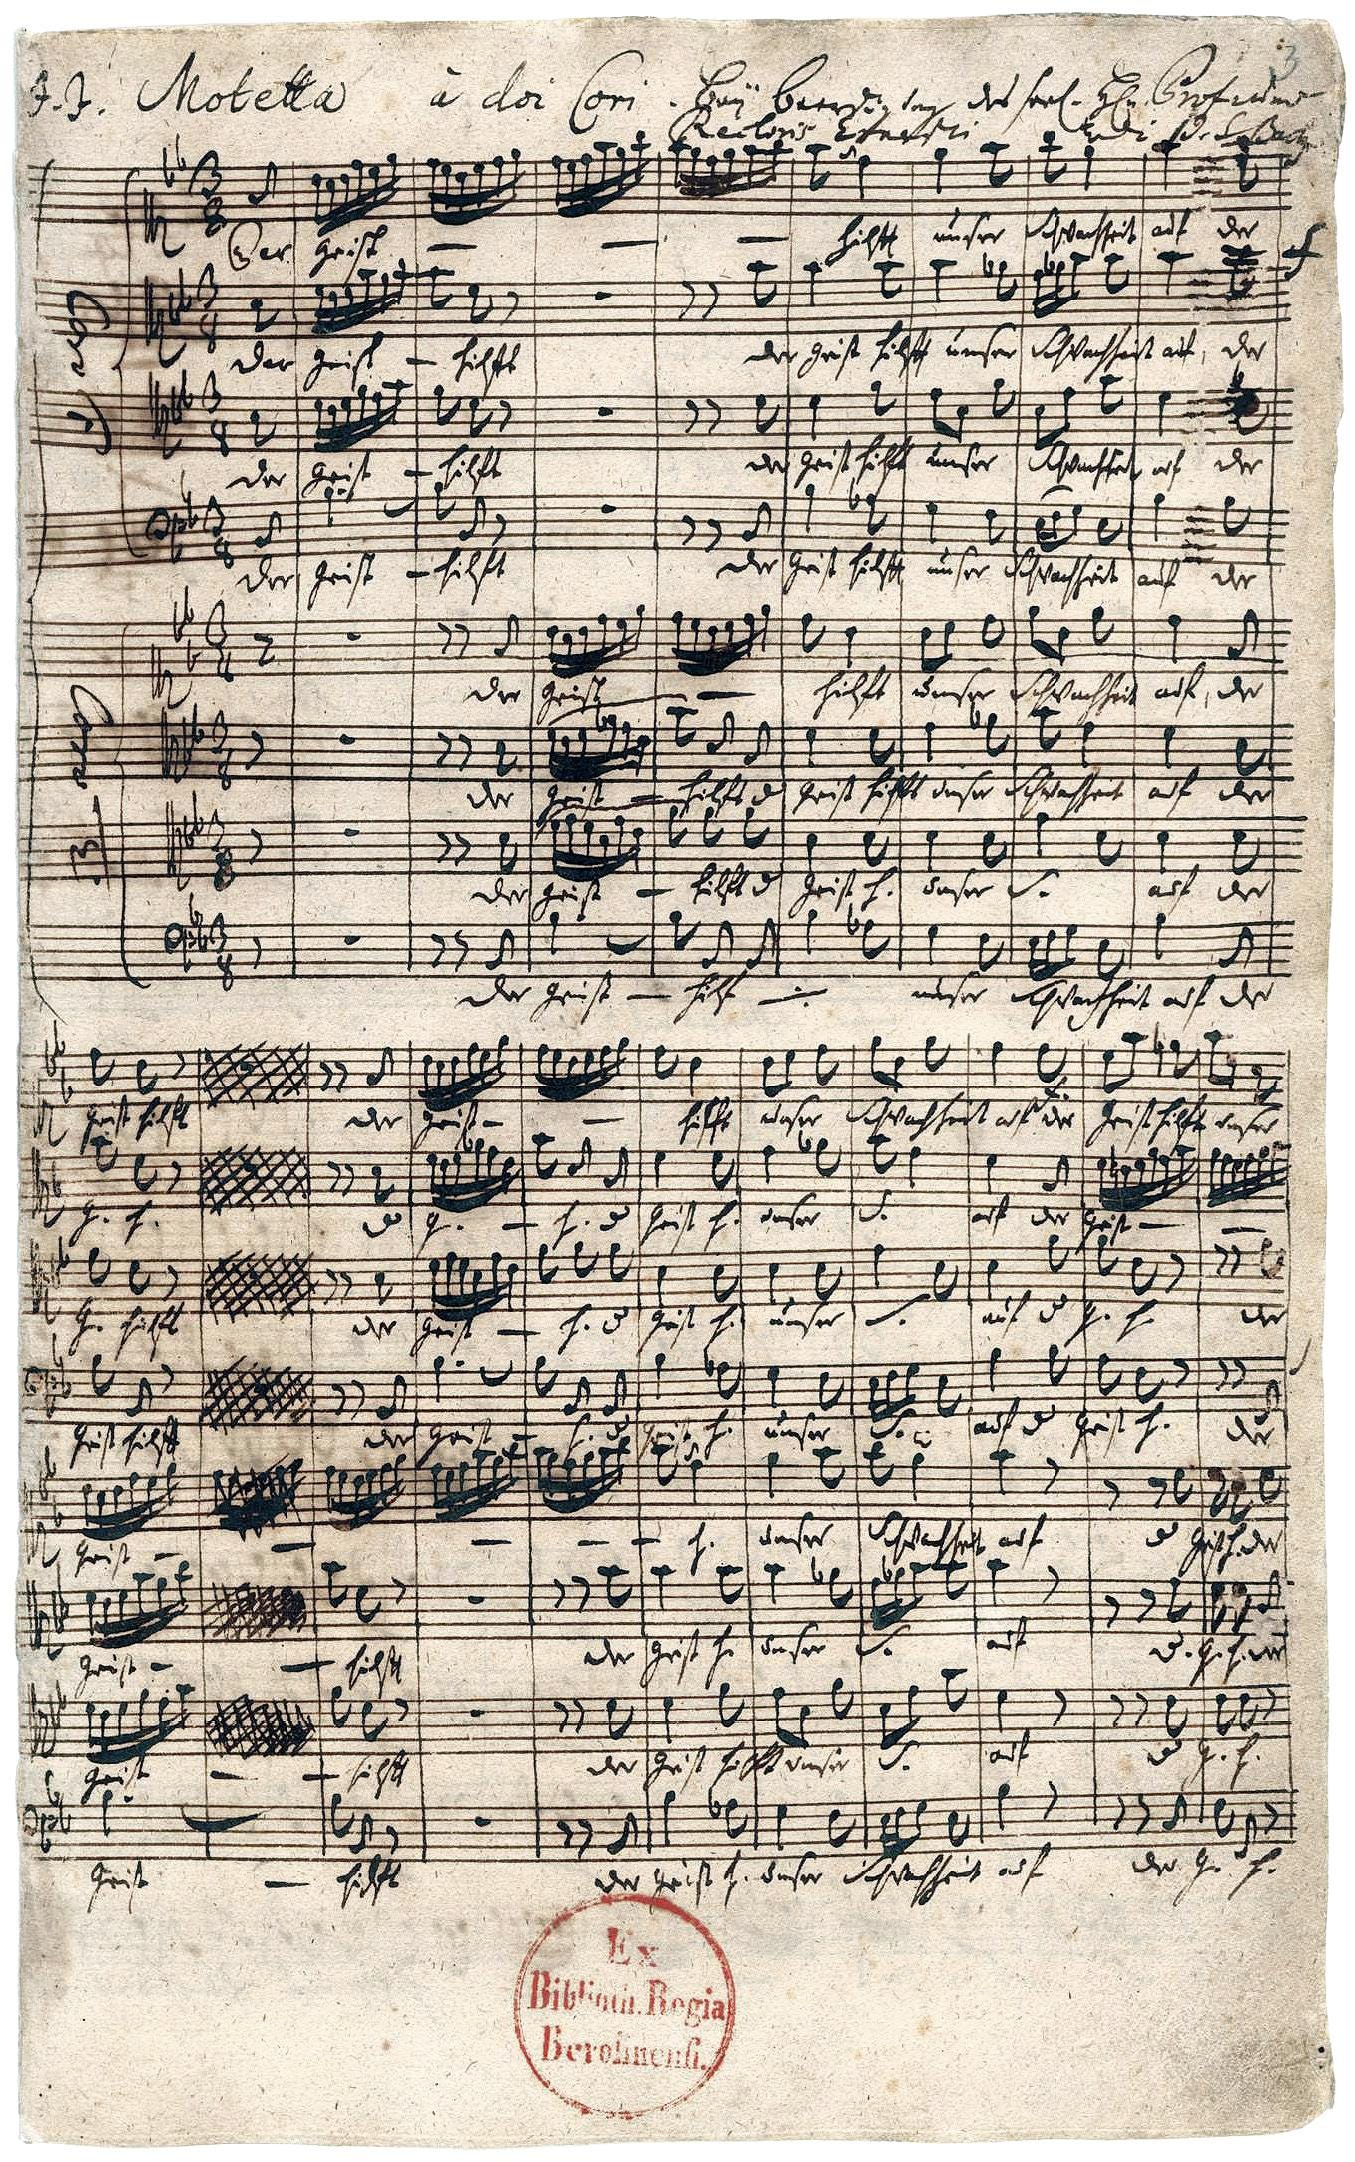 3
J. J. Motetta à doi Cori. Bey Beerdigung des seel. Hn. Profeßoris
Rectoris Ernesti di J. S. Bach
Der Geist — — — hilfft unser Schwachheit auf der
Der Geist — hilfft der Geist hilfft unser Schwachheit auf, der
der Geist — hilfft der Geist hilfft unser Schwachheit auf der
der Geist — hilfft der Geist hilfft unser Schwachheit auf der
der Geist — hilfft unser Schwachheit auf, der
der Geist — hilfft d Geist hilfft unser Schwachheit auf der
der Geist — hilfft d Geist h. unser S. auf der
der Geist — hilfft unser Schwachheit auf der
Geist hilfft der Geist — — hilfft unser Schwachheit auf der Geist hilfft unser
G. h. d G. — h. d Geist h. unser S. auf der Geist — —
G. hilfft der Geist — h. d Geist h. unser S. auf d G. h. der
Geist hilfft der Geist — h. d Geist h. unser S. auf d Geist h. der
Geist — — — — — h. unser Schwachheit auf d Geist h. der
Geist — — hilfft der Geist h. unser S. auf d. G. h. der
Geist — — hilfft der Geist hilfft unser S. auf d G. h.
Geist — hilfft der Geist h. unser Schwachheit auf der G. h.
Ex
Biblioth. Regia
Berolinensi.